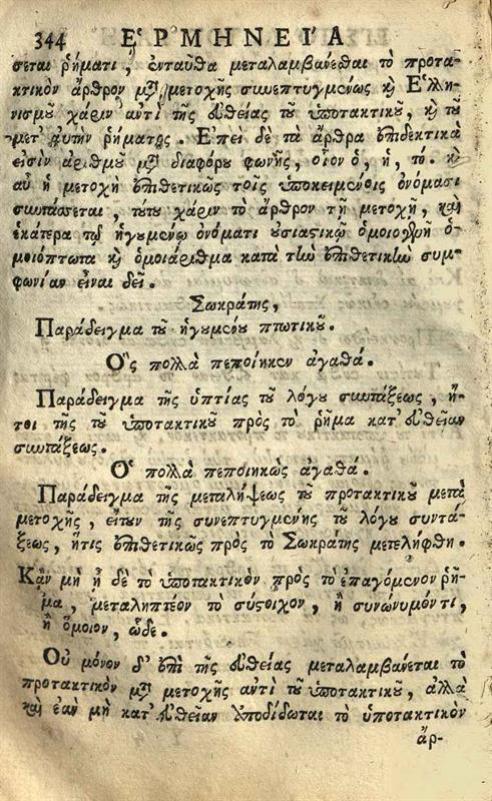 344 ἙΡΜΗΝΕΙΑ
σεται ῥήματι, ἐνταῦθα μεταλαμβάνεσθαι τὸ προτα-
κτικὸν ἄρθρον μτ̀ μετοχῆς συνεπτυγμένως κὶ Ἑλλη-
νισμοῦ χάριν ἀντὶ τῆς εὐθείας τοῦ ὑποτακτικοῦ, κὶ τοῦ
μετ' αὐτὴν ῥήματος. Ἐπεὶ δὲ τὰ ἄρθρα ἐπιδεκτικά
εἰσιν ἀριθμοῦ μτ̀ διαφόρου φωνῆς, οἷον ὁ, ἡ, τό. κὶ
αὖ ἡ μετοχὴ ἐπιθετικῶς τοῖς ὑποκειμένοις ὀνόμασι
συντάσσεται, τούτου χάριν τὸ ἄρθρον τῇ μετοχῇ, καὶ
ἑκάτερα τῷ ἡγουμένῳ ὀνόματι οὐσιαστικῷ ὁμοιογενῆ ὁ-
μοιόπτωτα κὶ ὁμοιάριθμα κατὰ τὴν ἐπιθετικὴν συμ-
φωνίαν εἶναι δεῖ.
Σωκράτης,
Παράδειγμα τοῦ ἡγουμένου πτωτικοῦ.
Ὃς πολλὰ πεποίηκεν ἀγαθά.
Παράδειγμα τῆς ὑπτίας τοῦ λόγου συντάξεως, ἤ-
τοι τῆς τοῦ ὑποτακτικοῦ πρὸς τὸ ῥῆμα κατ' εὐθεῖαν
συντάξεως.
Ὁ πολλὰ πεποιηκὼς ἀγαθά.
Παράδειγμα τῆς μεταλήψεως τοῦ προτακτικοῦ μετὰ
μετοχῆς, εἴτουν τῆς συνεπτυγμένης τοῦ λόγου συντά-
ξεως, ἥτις ἐπιθετικῶς πρὸς τὸ Σωκράτης μετελήφθη.
Κἂν μὴ ᾖ δὲ τὸ ὑποτακτικὸν πρὸς τὸ ἐπαγόμενον ῥῆ-
μα, μεταληπτέον τὸ σύστοιχον, ἢ συνώνυμόν τι,
ἢ ὅμοιον, ὧδε.
Οὐ μόνον δ' ἐπὶ τῆς εὐθείας μεταλαμβάνεται τὸ
προτακτικὸν μτ̀ μετοχῆς ἀντὶ τοῦ ὑποτακτικοῦ, ἀλλὰ
καὶ ἐὰν μὴ κατ' εὐθεῖαν ἀποδίδωται τὸ ὑποτακτικὸν
ἄρ-